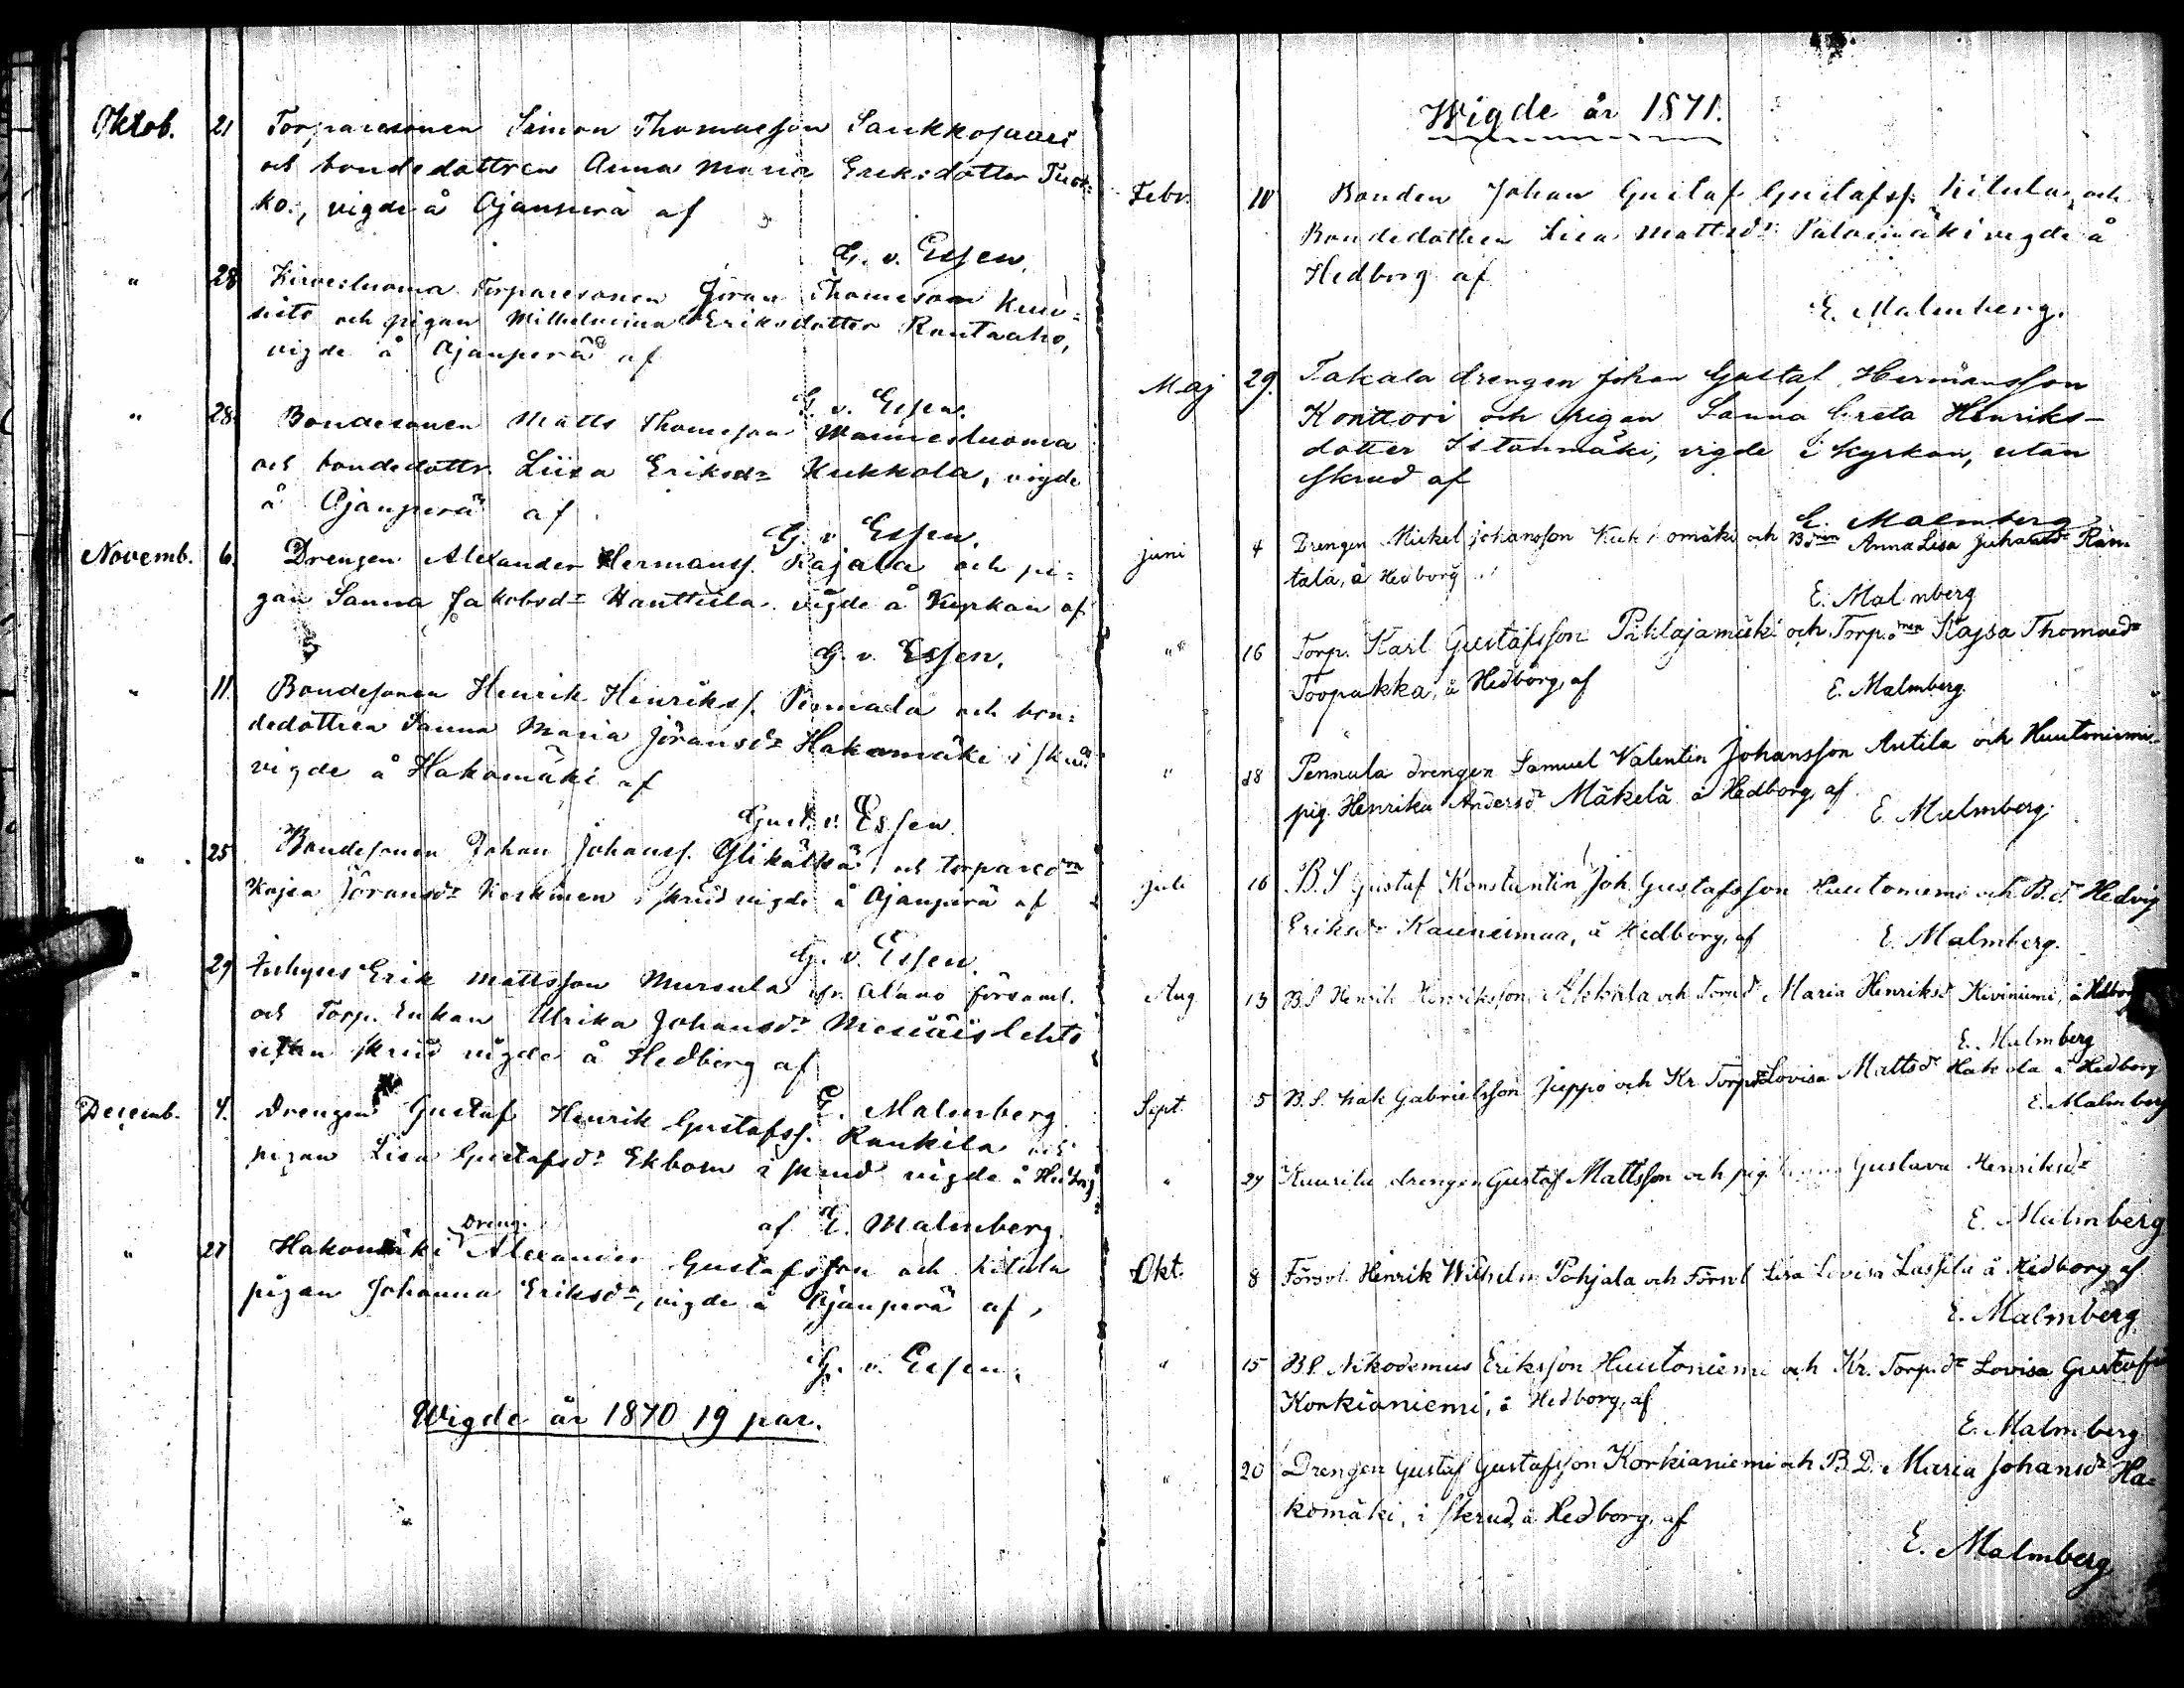 Oktob. 21 Torparesonen Simon Thomasson Saukkojaari
och bondedottren Anna Maria Eriksdotter Tuok=
ko, vigde å Ojanperä af
G. v. Essen.
" 28 Kirvesluoma Torparesonen Jöran Thomsson Kuu=
sisto och pigan Wilhelmina Eriksdotter Rautaaho,
vigde å Ojanperä af
G. v. Essen.
" 28 Bondesonen Matts Thomsson Mannesluoma
och bondedottr. Liisa Eriksdr Kukkola, vigde
å Ojanperä af
G. v. Essen.
Novemb. 6. Drengen Alexander Hermanss. Rajala och pi=
gan Sanna Jakobsdr Hanttula vigde å Kyrkan af
G. v. Essen.
" 11. Bondesonen Henrik Henrikss. Pennala och bon=
dedottren Sanna Maria Jöransdr Hakomäki i skrud
vigde å Hakomäki af
Gust. v. Essen.
" 25 Bondesonen Johan Johanss. Ylikätkä, och torparedrn
Kajsa Jöransdr Keskinen i skrud vigde å Ojanperä af
G. v. Essen.
" 29 Inhyses Erik Mattsson Mursula fr. Alavo församl.
och Torp. Enkan Ulrika Johansdr Meriäislehto
utan skrud vigde å Hedborg af
E. Malmberg.
Decemb. 4. Drengen Gustaf Henrik Gustafss. Rankila och
pigan Lisa Gustafsdr Ekbom i skrud vigde å Hedborg
af E. Malmberg.
" 27 Hakomäki Dreng. Alexander Gustafsson och Kitula
pigan Johanna Eriksdr, vigde å Ojanperä af,
G. v. Essen.
Wigde år 1870 19 par.
Wigde år 1871.
Febr. 10 Bonden Johan Gustaf Gustafss. Kitula, och
Bondedottren Lisa Mattsdr Palomäki vigde å
Hedborg af
E. Malmberg.
Maj 29. Takala drengen Johan Gustaf Hermansson
Konttori och pigan Sanna Greta Henriks-
dotter Isotanmäki, vigde i kyrkan, utan
skrud af
E. Malmberg
juni 4 Drengen Mickel Johansson och Bdren Anna Lisa Juhansdr Ran
tala, å Hedborg
E. Malmberg
" 16 Torp. Karl Gustafsson Pihlajamäki och Torp.dren Kajsa Thomasdr
Toopakka, å Hedborg, af
E. Malmberg.
" 18 Pennala drengen Samuel Valentin Johansson Antila och Huutoniemi
pig. Henrika Andersdr Mäkelä å Hedborg, af
E. Malmberg.
Juli 16 B.S Gustaf Konstantin Joh. Gustafsson Huutoniemi och B.d. Hedvig
Eriksdr Kauneimaa, å Hedborg, af
E. Malmberg.
Aug. 13 B.S. Henrik Henriksson Akkala och Torpd Maria Henriksd Kiviniemi, å Hedborg
E. Malmberg
Sept. 5 B.S. Isak Gabrielsson Juppo och Kr Torpdr Lovisa Mattsdr Hakola å Hedborg
E. Malmberg
" 24 Kuurila drengen Gustaf Mattsson och pig. Gustava Henriksdr
E. Malmberg
Okt. 8 Försvl. Henrik Wilhelm Pohjala och Försvl Lisa Lovisa Lassila å Hedborg af
E. Malmberg
" 15 B.S. Nikodemus Eriksson Huutoniemi och Kr. Torp.dr Lovisa Gustafs
Korkianiemi, å Hedborg, af
E. Malmberg
" 20 Drengen Gustaf Gustafsson Korkianiemi och B.D. Maria Johansdr Ha=
komäki, i skrud å Hedborg, af
E. Malmberg